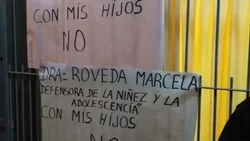 CON MIS HIJOS
NO
DRA= ROVEDA MARCELA
DEFENSORA DE LA NIÑEZ Y LA
ADOLESCENCIA"
CON MIS HIJOS
NO